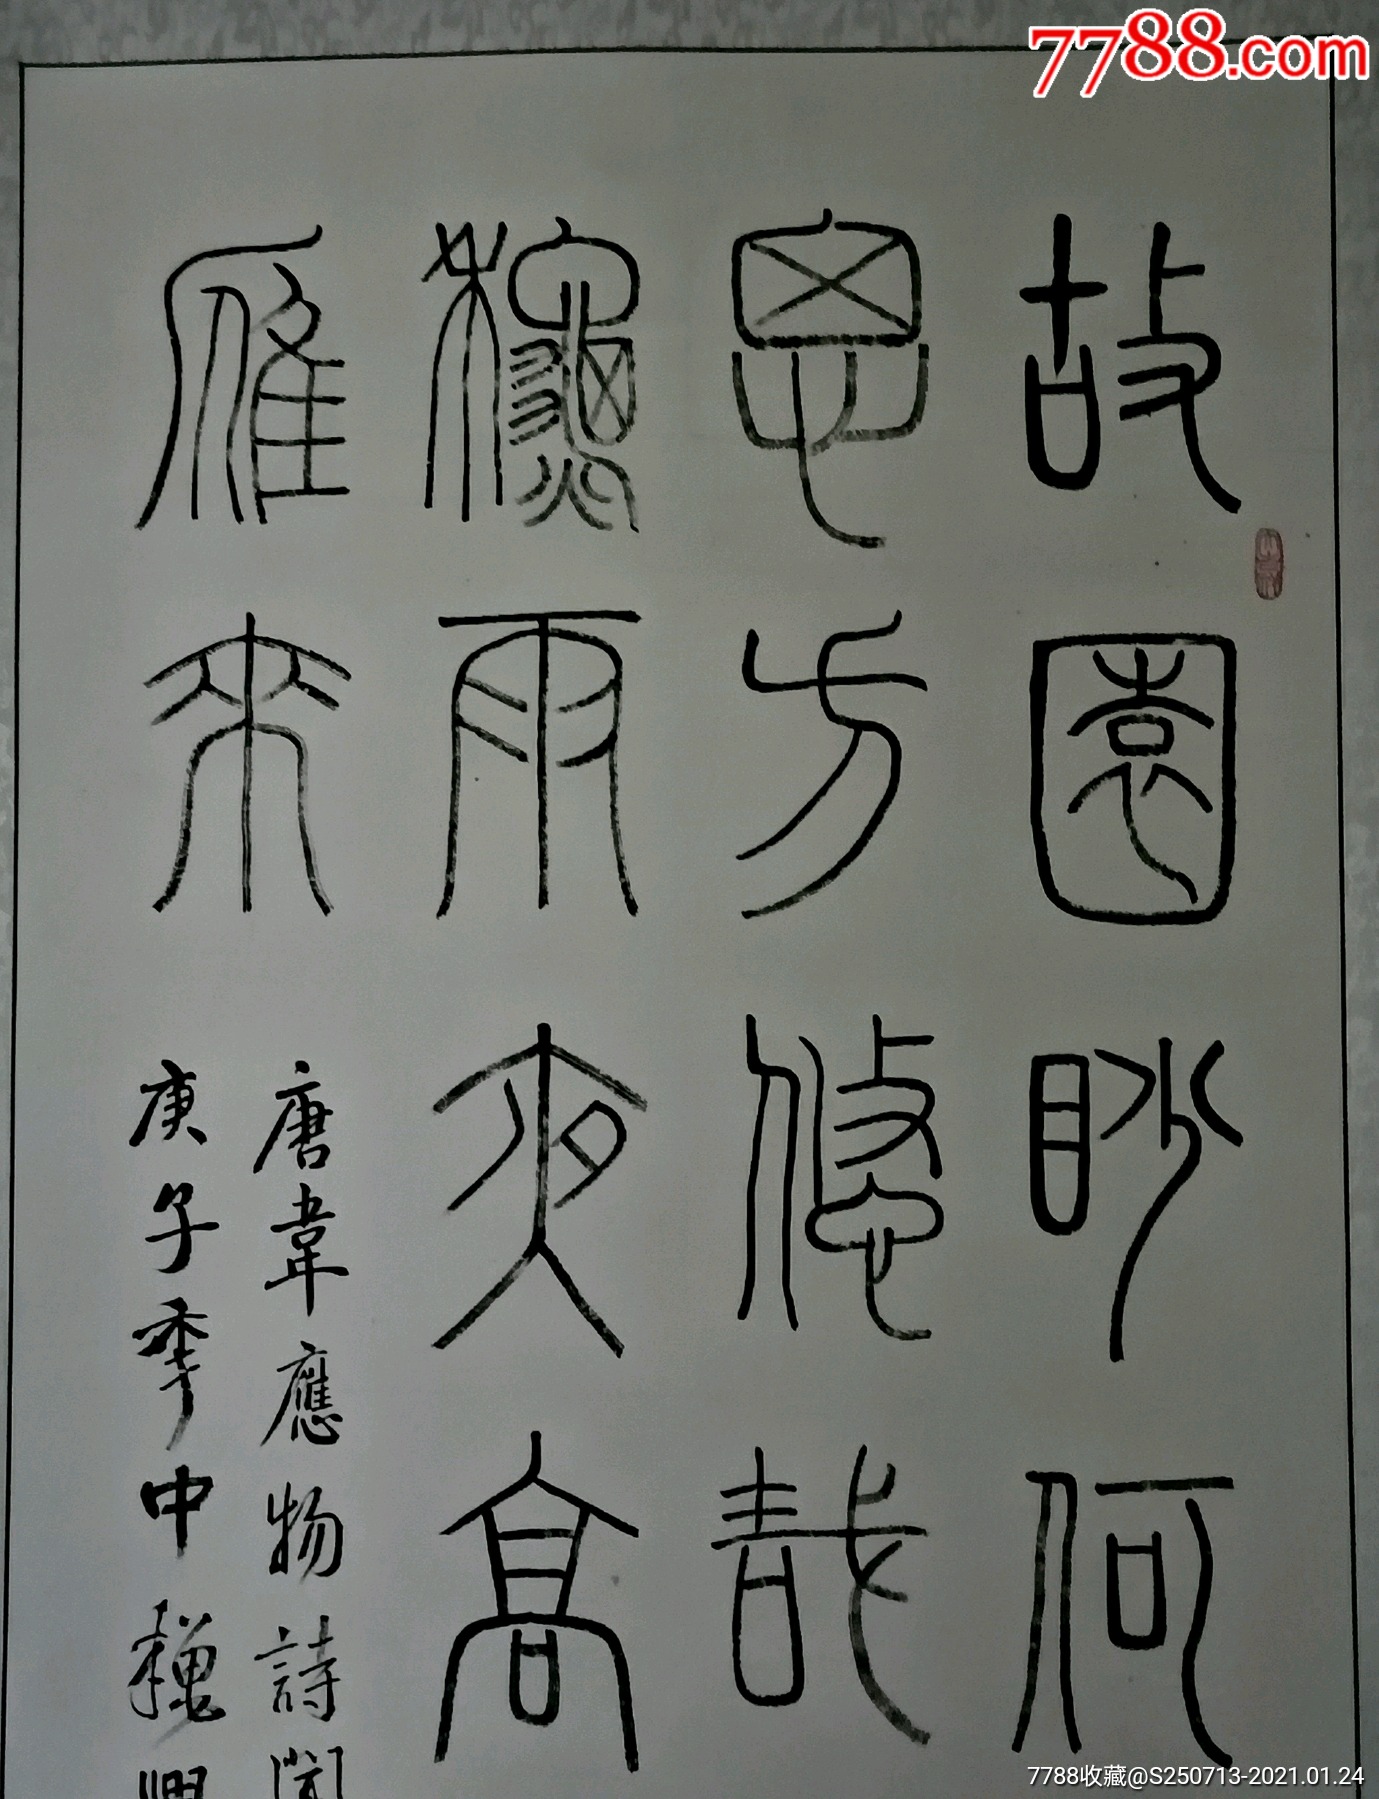 7788.com
故園眇何
思方悠哉
穐雨夜高
雁來
唐韋應物詩聞
庚子季中穐
7788收藏@S250713-2021.01.24